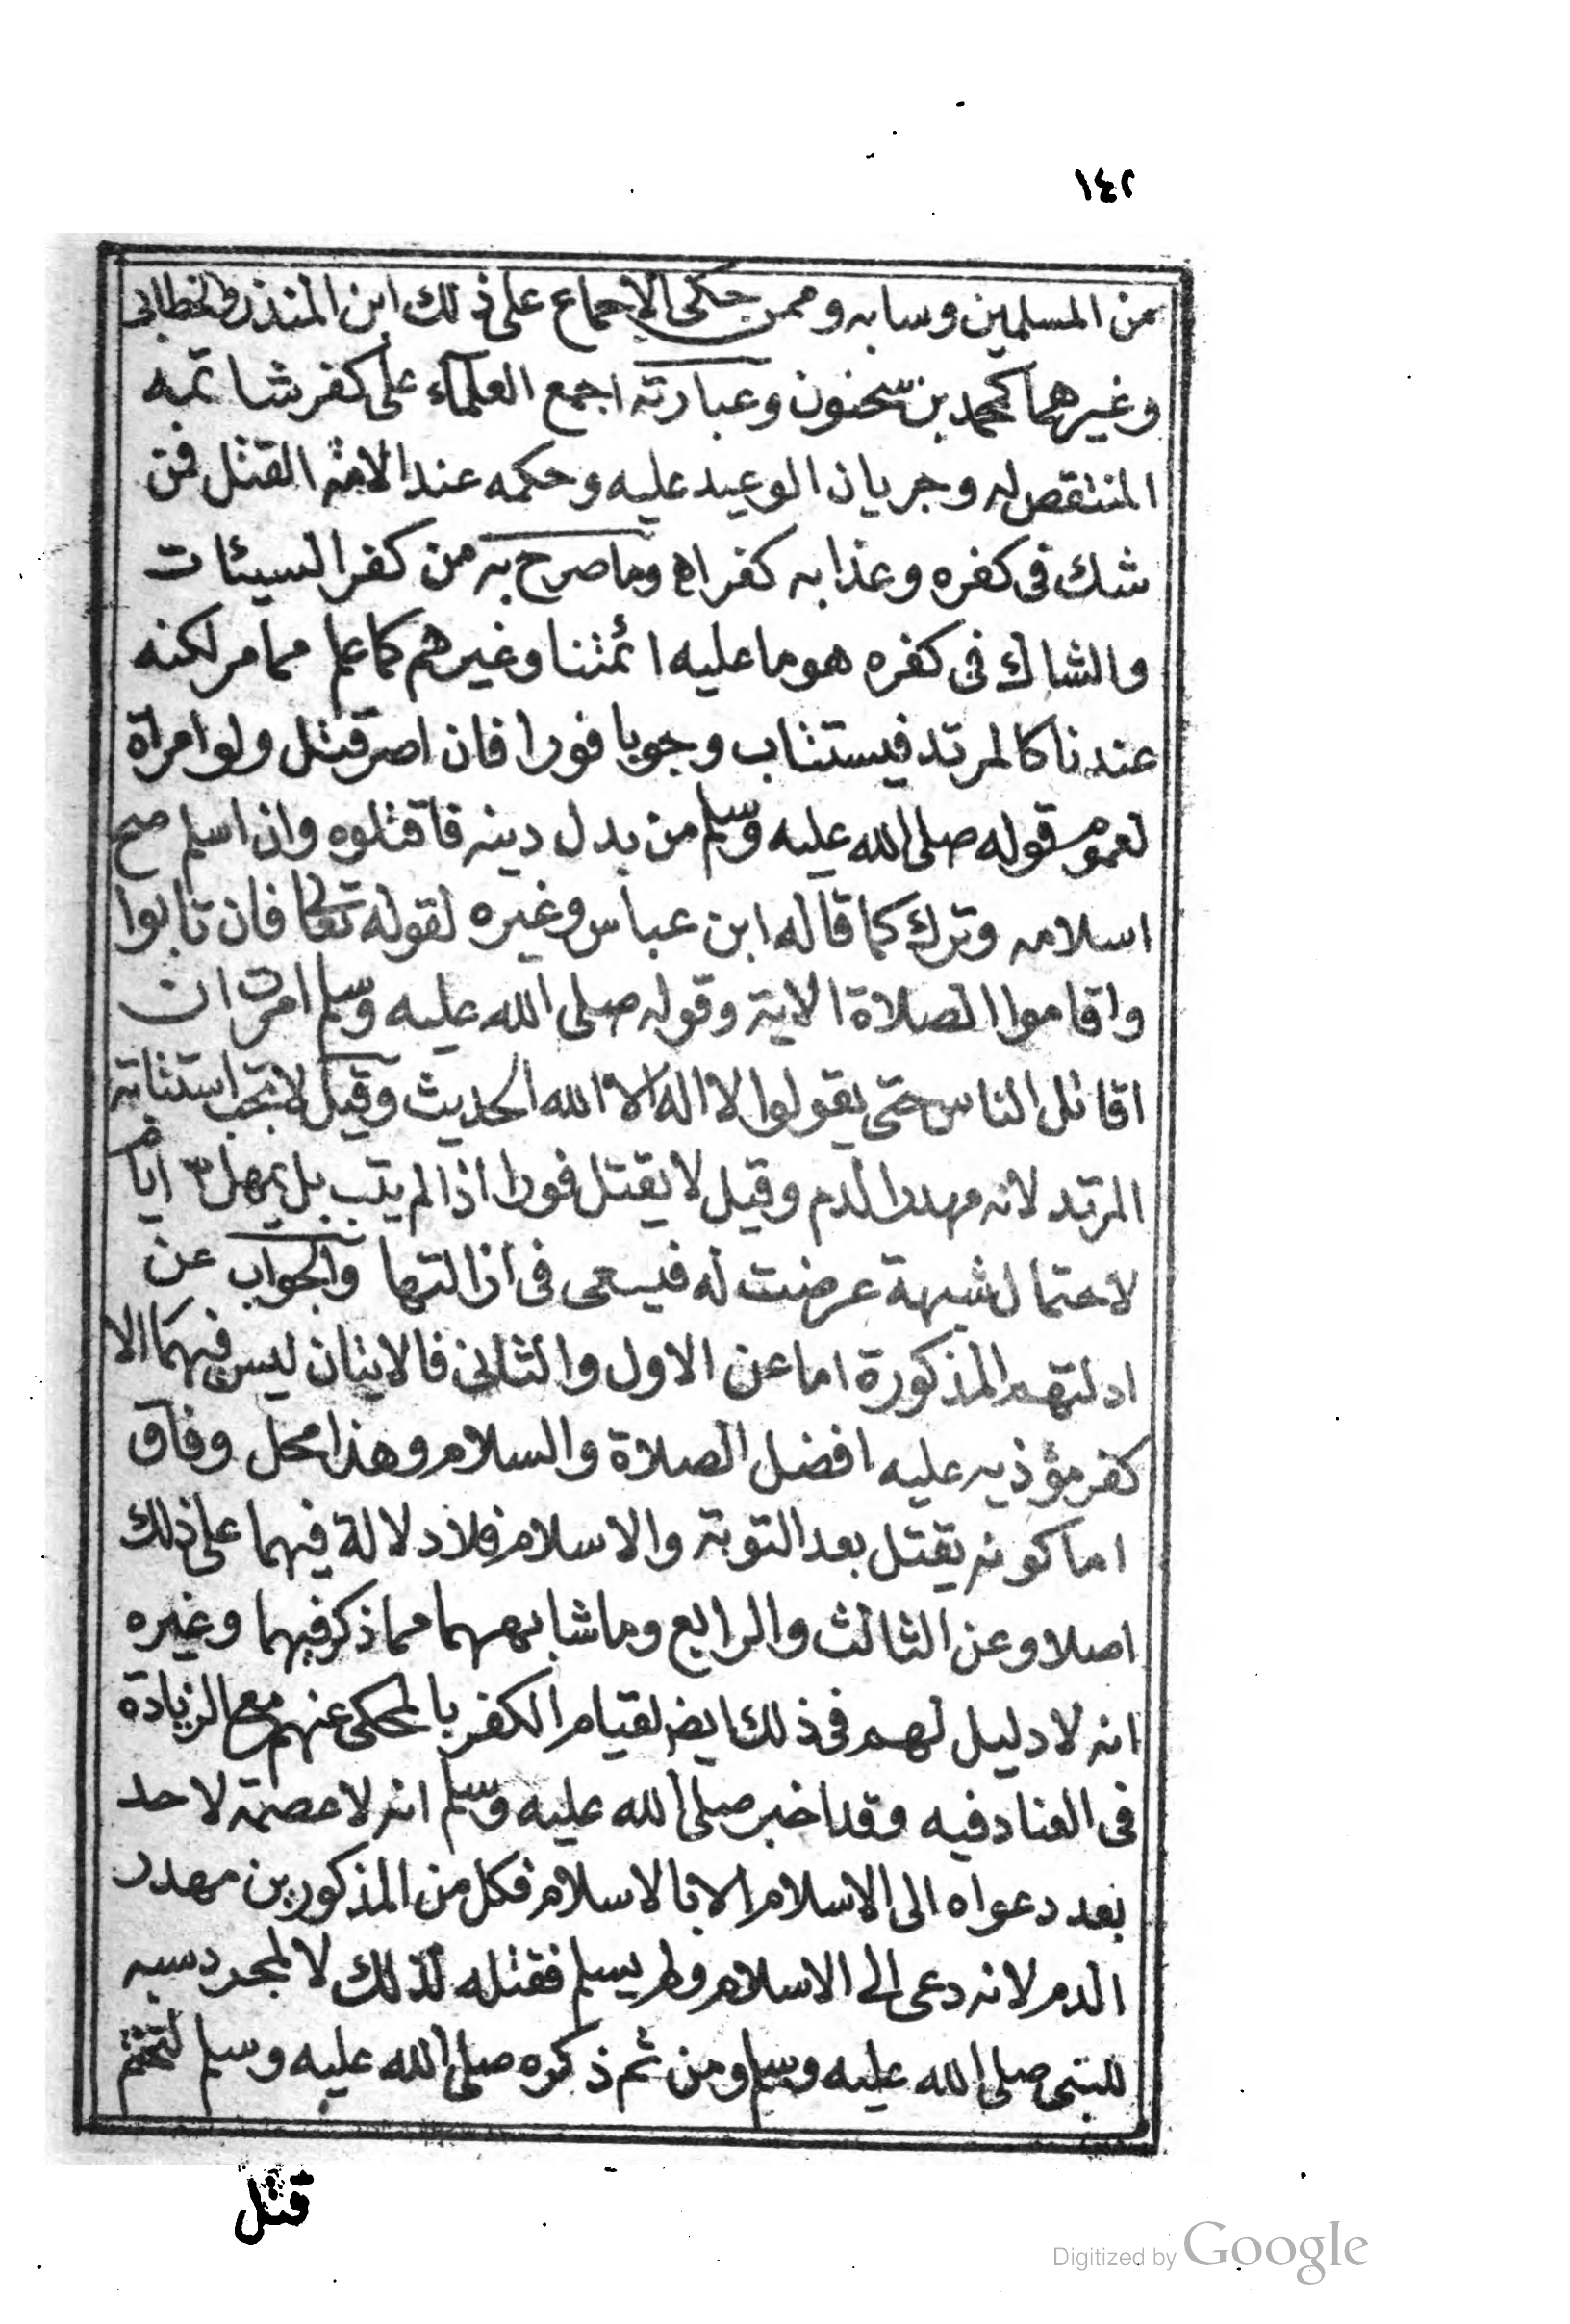 ١٤٢
من المسلمين وسابه وممن حكى الاجماع على ذلك ابن المنذر والخطابى
وغيرهما كمحمد بن سحنون وعبارته اجمع العلماء على كفر شاتمه
المنتقص له وجريان الوعيد عليه وحكمه عند الامة القتل فمن
شك فى كفره وعذابه كفر اه وما صرح به من كفر السيئات
والشاك فى كفره هو ما عليه ائمتنا وغيرهم كما علم مما مر لكنه
عندنا كالمرتد فيستتاب وجوبا فورا فان اصر قتل ولو امراة
لعموم قوله صلى الله عليه وسلم من بدل دينه فاقتلوه وان اسلم صح
اسلامه وترك كما قاله ابن عباس وغيره لقوله تعالى فان تابوا
واقاموا الصلاة الاية وقوله صلى الله عليه وسلم امرت ان
اقاتل الناس حتى يقولوا لا اله الا الله الحديث وقيل لا تجب استتابة
المرتد لانه مهدر الدم وقيل لا يقتل فورا اذا لم يتب بل يمهل ٣ ايام
لاحتمال شبهة عرضت له فيسعى فى ازالتها والجواب عن
ادلتهم المذكورة اما عن الاول والثانى فالايتان ليس فيهما الا
كفر مؤذيه عليه افضل الصلاة والسلام وهذا محل وفاق
اما كونه يقتل بعد التوبة والاسلام فلا دلالة فيهما على ذلك
اصلا وعن الثالث والرابع وما شابههما مما ذكر فيهما وغيره
انه لا دليل لهم فى ذلك ايضا لقيام الكفر بالمحكى عنهم مع الزيادة
فى العناد فيه وقد اخبر صلى الله عليه وسلم انه لا عصمة لاحد
بعد دعواه الى الاسلام الا بالاسلام فكل من المذكورين مهدر
الدم لانه دعى الى الاسلام ولم يسلم فقتله لذلك لا لمجرد سبه
للنبى صلى الله عليه وسلم ومن ثم ذكره صلى الله عليه وسلم لتحتم
قتل
Digitized by Google